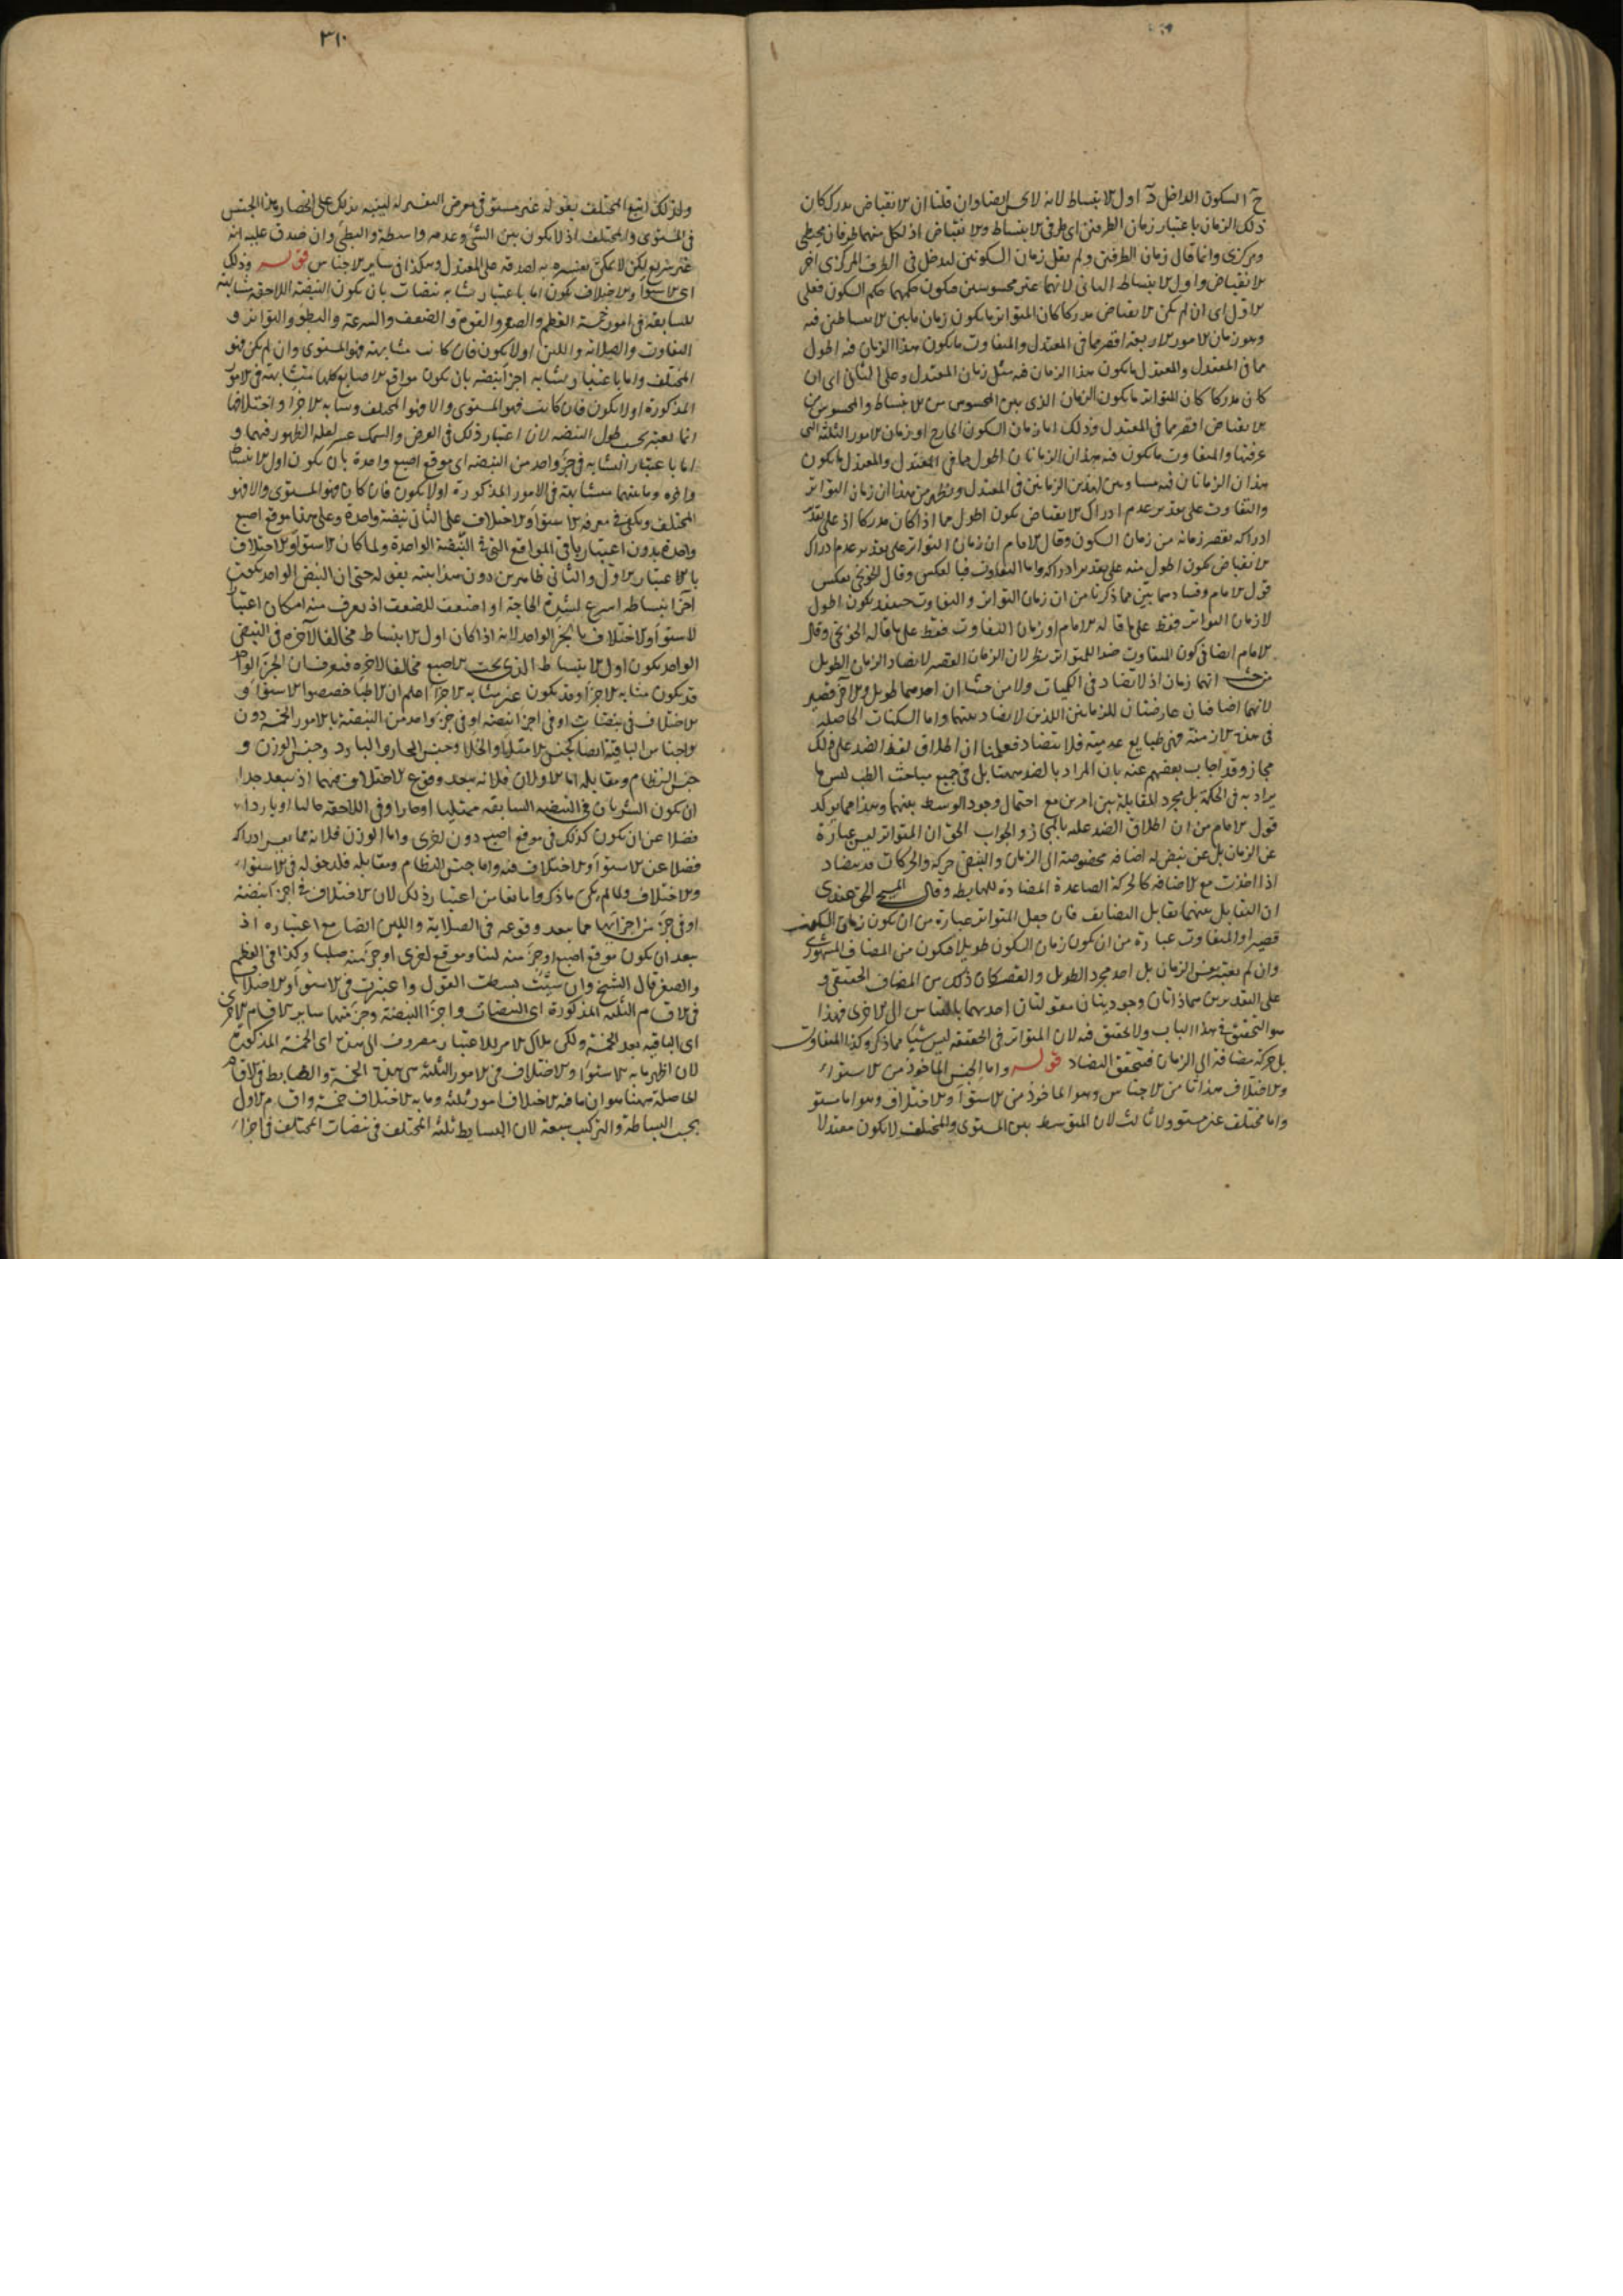 السكون الداخل اول الانبساط لانه لا يحس ايضا وان قلنا ان الانقباض يدرك كان
ذلك الزمان باعتبار زمان الطرفين اى طرفى الانبساط والانقباض اذ لكل منهما طرفان محيطى
ومركزى وانما قال زمان الطرفين ولم يقل زمان السكونين ليدخل فى الطرف المركزى اخر
الانقباض واول الانبساط الثانى لانهما غير محسوسين فيكون حكمهما حكم السكون فعلى
الاول اى ان لم يكن الانقباض مدركا كان المتواتر ما يكون زمان ما بين الانبساطين فيه
وهو زمان الامور الاربعة اقصر مما فى المعتدل والمتفاوت ما يكون هذا الزمان فيه اطول
مما فى المعتدل والمعتدل ما يكون هذا الزمان فيه مثل زمان المعتدل وعلى الثانى اى ان
كان مدركا كان المتواتر ما يكون الزمان الذى بين المحسوس من الانبساط والمحسوس من
الانقباض اقصر مما فى المعتدل وذلك اما زمان السكون الخارج او زمان الامور الثلثة التى
عرفتها والمتفاوت ما يكون فيه هذان الزمانان اطول مما فى المعتدل والمعتدل ما يكون
هذان الزمانان فيه مساويين لهذين الزمانين فى المعتدل ويظهر من هذا ان زمان التواتر
والتفاوت على تقدير عدم ادراك الانقباض يكون اطول مما اذا كان مدركا اذ على تقدير
ادراكه يقصر زمانه من زمان السكون وقال الامام ان زمان التواتر على تقدير عدم ادراك
الانقباض يكون اطول منه على تقدير ادراكه واما التفاوت فبالعكس وقال الخونجى بعكس
قول الامام وفسادهما بين مما ذكرنا من ان زمان التواتر والتفاوت حينئذ يكون اطول
لا زمان التواتر فقط على ما قاله الامام او زمان التفاوت فقط على ما قاله الخونجى وقال
الامام ايضا فى كون المتفاوت ضدا للمتواتر نظر لان الزمان القصير لا يضاد الزمان الطويل
من حيث انهما زمان اذ لا تضاد فى الكميات ولا من حيث ان احدهما طويل والاخر قصير
لانهما اضافتان عارضتان للزمانين اللذين لا تضاد بينهما واما السكنات الحاصلة
فى هذه الازمنة فهى طبايع عدمية فلا يتضاد فعلمنا ان اطلاق لفظ الضد على ذلك
مجاز وقد اجاب بعضهم عنه بان المراد بالضد ومقابل فى جميع مباحث الطب ليس ما
يراد به فى الحكمة بل مجرد المقابلة بين امرين مع احتمال وجود الوسط بينهما وهذا مما يؤكد
قول الامام من ان اطلاق الضد عليه بالمجاز والجواب الحق ان المتواتر ليس عبارة
عن الزمان بل عن نبض له اضافة مخصوصة الى الزمان والنبض حركة والحركات قد يتضاد
اذا اخذت مع الاضافة كالحركة الصاعدة المضادة للهابطة وقال المسيحى الحق عندى
ان التقابل بينهما تقابل التضايف فان جعل المتواتر عبارة من ان يكون زمان السكون
قصيرا والمتفاوت عبارة من ان يكون زمان السكون طويلا فيكون من المضاف المشهورى
وان لم يعتبر جنس الزمان بل اخذ مجرد الطويل والقصير كان ذلك من المضاف الحقيقى و
على التقديرين هما ذاتان وجوديتان معقولتان احدهما بالقياس الى الاخرى فهذا
هو التحقيق فى هذا الباب ولا تحقيق فيه لان المتواتر فى الحقيقة ليس شيئا مما ذكر وكذا المتفاوت
بل حركة مضافة الى الزمان فيتحقق التضاد قوله واما الجنس الماخوذ من الاستواء
والاختلاف هذا تا من الاجناس وهو الماخوذ من الاستواء والاختلاف وهو اما مستو
واما مختلف غير مستو ولا ثالث لان المتوسط بين المستوى والمختلف لا يكون معتدلا
٣١٠
ولذلك اتبع المختلف بقوله غير مستو فى معرض التفسير له لينبه بذلك على انحصار هذا الجنس
فى المستوى والمختلف اذ لا يكون بين الشئ وعدمه واسطة والبطئ وان صدق عليه انه
غير سريع لكن لا يمكن تفسيره به لصدقه على المعتدل وهكذا فى ساير الاجناس قوله وذلك
اى الاستواء والاختلاف يكون اما باعتبار تشابه نبضات بان يكون النبضة اللاحقة مشابهة
للسابقة فى امور خمسة العظم والصغر والقوة والضعف والسرعة والبطؤ والتواتر و
التفاوت والصلابة واللين اولا يكون فان كانت متشابهة فهو المستوى وان لم يكن فهو
المختلف واما باعتبار تشابه اجزاء نبضة بان يكون مواقع الاصابع كلها متشابهة فى الامور
المذكورة او لا يكون فان كانت فهو المستوى والا فهو المختلف وتشابه الاجزاء واختلافها
انما يعتبر بحسب طول النبضة لان اعتبار ذلك فى العرض والسمك عسر لقلة الظهور فيهما و
اما باعتبار التشابه فى جزء واحد من النبضة اى موقع اصبع واحدة بان يكون اول الانبساط
واخره وما بينهما متشابهة فى الامور المذكورة او لا يكون فان كان فهو المستوى والا فهو
المختلف ويكفى فى معرفة الاستواء والاختلاف على الثانى نبضة واحدة وعلى هذا موقع اصبع
واحدة بدون اعتبار باقى المواقع التى فى النبضة الواحدة ولما كان الاستواء والاختلاف
بالاعتبار الاول والثانى ظاهرين دون هذا بينه بقوله حتى ان النبض الواحد يكون
آخر انبساطه اسرع لشدة الحاجة او اضعف للضعف اذ يعرف منه امكان اعتبار
الاستواء والاختلاف بالجزء الواحد لانه اذا كان اول الانبساط مخالفا لآخره فى النبض
الواحد يكون اول الانبساط الذى تحت الاصبع مخالفا لآخره فيعرف ان الجزء الواحد
قد يكون متشابه الاجزاء وقد يكون غير متشابه الاجزاء اعلم ان الاطباء خصصوا الاستواء و
الاختلاف فى نبضات او فى اجزاء نبضة او فى جزء واحد من النبضة بالامور الخمسة دون
الاجناس الباقية ايضا كجنس الامتلاء والخلاء وجنس الحار والبارد وجنس الوزن و
جنس النظام ومقابله اما الاولان فلانه يبعد وقوع الاختلاف فيهما اذ يبعد جدا
ان يكون الشريان فى النبضة السابقة ممتليا او حارا وفى اللاحقة خاليا او باردا
فضلا عن ان يكون كذلك فى موقع اصبع دون اخرى واما الوزن فلانه مما يعسر ادراكه
فضلا عن الاستواء والاختلاف فيه واما جنس النظام ومقابله فلدخوله فى الاستواء
والاختلاف ولما لم يكن ما ذكروا مانعا من اعتبار ذلك لان الاختلاف فى اجزاء نبضة
او فى جزء من اجزائها مما يبعد وقوعه فى الصلابة واللين ايضا مع اعتباره اذ
يبعد ان يكون موقع اصبع او جزء منه لينا وموقع اخرى او جزء منه صلبا وكذا فى العظم
والصغر قال الشيخ وان شئت بسطت القول واعتبرت فى الاستواء والاختلاف
فى الاقسام الثلثة المذكورة اى النبضات واجزاء النبضة وجزء منها ساير الاقسام الاخرى
اى الباقية بعد الخمسة ولكن ملاك الامر للاعتبار مصروف الى هذه اى الخمسة المذكورة
لان اظهر ما به الاستواء والاختلاف فى الامور الثلثة هى هذه الخمسة والضابط فى الاقسام
الحاصلة ههنا هو ان ما فيه الاختلاف امور ثلثة وما به الاختلاف خمسة واقسام الاول
بحسب البساطة والتركيب سبعة لان البسايط ثلثة المختلف فى نبضات المختلف فى اجزاء